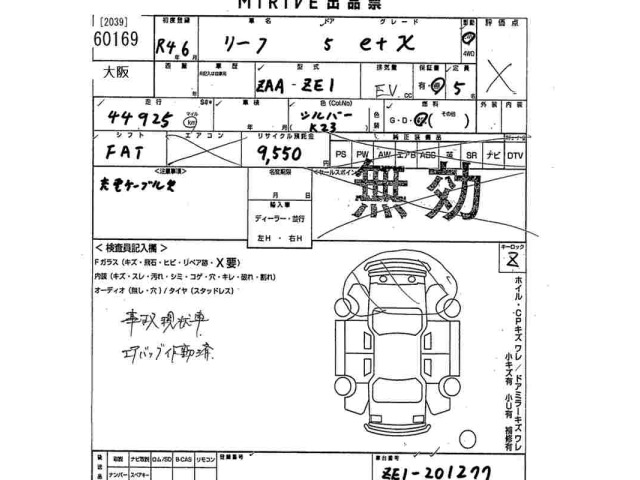 MIRIVE出品票
[2039]
60169
初度登録
車名
ドア
グレード
駆動
評価点
R4年6月
リーフ
5
e+X
4WD
大阪
車歴
型式
排気量
保証書
定員
ZAA-ZE1
EV
CC
有・無
5名
X
走行
車検
色(Col.No)
燃料
外装
内装
44925
マイル
km
年 月
シルバー
K23
G・D・
(その他)
シフト
エアコン
リサイクル預託金
純正装備品
FAT
9,550円
PS PW AW エアB ABS 革 SR ナビ DTV
<注意事項>
名変期限
<セールスポイント
充電ケーブル欠
月 日
無効
輸入車
ディーラー・並行
左H・右H
<検査員記入欄>
キーロック
Fガラス(キズ・飛石・ヒビ・リペア跡・X要)
内装(キズ・スレ・汚れ・シミ・コゲ・穴・キレ・破れ・割れ)
オーディオ(無し・穴)/タイヤ(スタッドレス)
事故現状車
エアバッグ作動済
ホイル・CPキズワレ/ドアミラーキズワレ
小キズ有 小U有 補修有
後送品
取説
ナビ取説
ロム/SD
B-CAS
リモコン
登録番号
車台番号
ナンバー
スペアキー
ZE1-201277